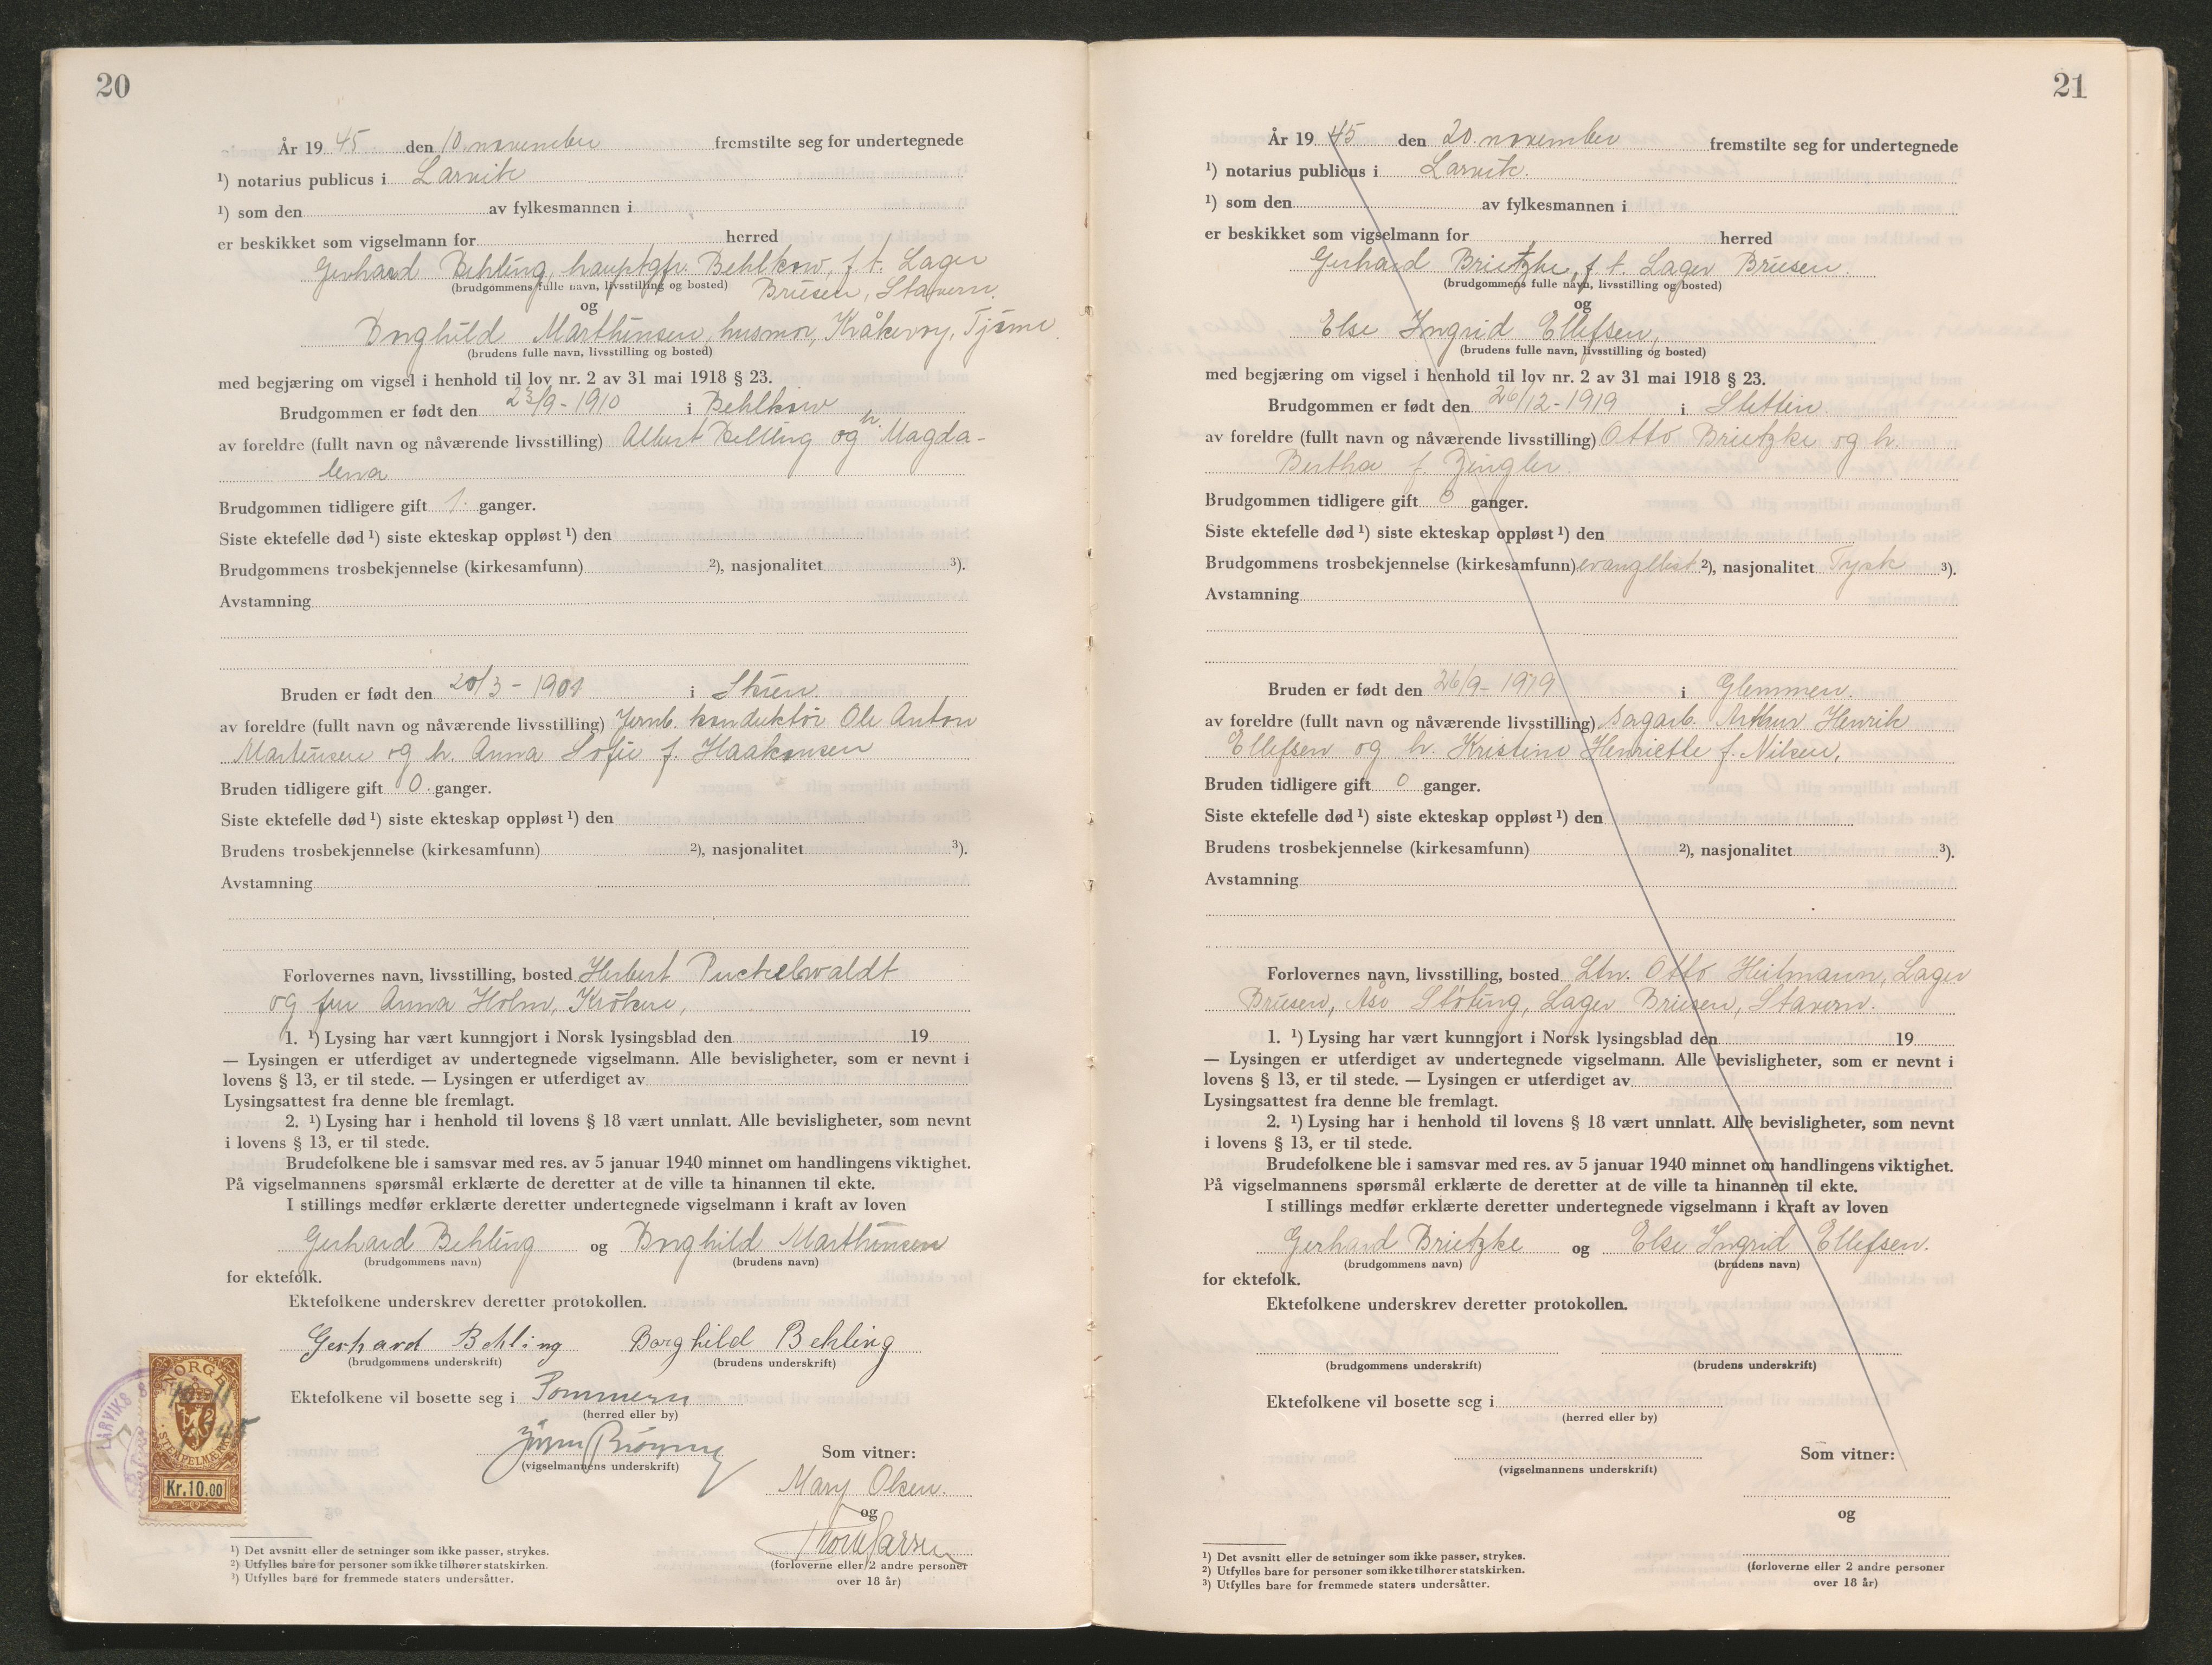 20
År 19 45 den 10. november fremstilte seg for undertegnede
¹) notarius publicus i Larvik
¹) som den av fylkesmannen i
er beskikket som vigselmann for herred
Gerhard Behling, hauptgfr. Behlkow, f. t. Lager
(brudgommens fulle navn, livsstilling og bosted) Briesen, Stavern.
og
Borghild Marthinsen, husmor, Kråkerøy, Tjøme
(brudens fulle navn, livsstilling og bosted)
med begjæring om vigsel i henhold til lov nr. 2 av 31 mai 1918 § 23.
Brudgommen er født den 23/9 - 1910 i Behlkow
av foreldre (fullt navn og nåværende livsstilling) Albert Behling og h. Magda-
lena
Brudgommen tidligere gift 1. ganger.
Siste ektefelle død ¹) siste ekteskap oppløst ¹) den
Brudgommens trosbekjennelse (kirkesamfunn) ²), nasjonalitet ³).
Avstamning
Bruden er født den 20/3 - 1901 i Skien.
av foreldre (fullt navn og nåværende livsstilling) Jernb. konduktør Ole Anton
Martinsen og h. Anna Sofie f. Haakonsen
Bruden tidligere gift 0. ganger.
Siste ektefelle død ¹) siste ekteskap oppløst ¹) den
Brudens trosbekjennelse (kirkesamfunn) ²), nasjonalitet ³).
Avstamning
Forlovernes navn, livsstilling, bosted Herbert Puckelwaldt
og fru Anna Holm,
1. ¹) Lysing har vært kunngjort i Norsk lysingsblad den 19
— Lysingen er utferdiget av undertegnede vigselmann. Alle bevisligheter, som er nevnt i
lovens § 13, er til stede. — Lysingen er utferdiget av
Lysingsattest fra denne ble fremlagt.
2. ¹) Lysing har i henhold til lovens § 18 vært unnlatt. Alle bevisligheter, som nevnt
i lovens § 13, er til stede.
Brudefolkene ble i samsvar med res. av 5 januar 1940 minnet om handlingens viktighet.
På vigselmannens spørsmål erklærte de deretter at de ville ta hinannen til ekte.
I stillings medfør erklærte deretter undertegnede vigselmann i kraft av loven
Gerhard Behling og Borghild Marthinsen
(brudgommens navn) (brudens navn)
for ektefolk.
Ektefolkene underskrev deretter protokollen.
Gerhard Behling Borghild Behling
(brudgommens underskrift) (brudens underskrift)
Ektefolkene vil bosette seg i Pommern
(herred eller by)
(vigselmannens underskrift)
Som vitner:
Mary Olsen.
og
(forloverne eller 2 andre personer
over 18 år)
NORGE
10-11
45
STEMPELMERKE
Kr.10.00
LARVIKS
¹) Det avsnitt eller de setninger som ikke passer, strykes.
²) Utfylles bare for personer som ikke tilhører statskirken.
³) Utfylles bare for fremmede staters undersåtter.
21
År 19 45 den 20. november fremstilte seg for undertegnede
¹) notarius publicus i Larvik.
¹) som den av fylkesmannen i
er beskikket som vigselmann for herred
Gerhard Brietzke, f. t. Lager Briesen.
(brudgommens fulle navn, livsstilling og bosted)
og
Else Ingrid Ellefsen,
(brudens fulle navn, livsstilling og bosted)
med begjæring om vigsel i henhold til lov nr. 2 av 31 mai 1918 § 23.
Brudgommen er født den 26/12 - 1919 i Stettin.
av foreldre (fullt navn og nåværende livsstilling) Otto Brietzke og h.
Bertha f. Zingler.
Brudgommen tidligere gift 0 ganger.
Siste ektefelle død ¹) siste ekteskap oppløst ¹) den
Brudgommens trosbekjennelse (kirkesamfunn) ²), nasjonalitet Tysk ³).
Avstamning
Bruden er født den 26/9 - 1919 i Glemmen.
av foreldre (fullt navn og nåværende livsstilling) sagarb. Arthur Henrik
Ellefsen og h. Kristine Henriette f. Nilsen.
Bruden tidligere gift 0 ganger.
Siste ektefelle død ¹) siste ekteskap oppløst ¹) den
Brudens trosbekjennelse (kirkesamfunn) ²), nasjonalitet ³).
Avstamning
Forlovernes navn, livsstilling, bosted Ltn. Otto Heitmann, Lager
Briesen, Lager Briesen, Stavern.
1. ¹) Lysing har vært kunngjort i Norsk lysingsblad den 19
— Lysingen er utferdiget av undertegnede vigselmann. Alle bevisligheter, som er nevnt i
lovens § 13, er til stede. — Lysingen er utferdiget av
Lysingsattest fra denne ble fremlagt.
2. ¹) Lysing har i henhold til lovens § 18 vært unnlatt. Alle bevisligheter, som nevnt
i lovens § 13, er til stede.
Brudefolkene ble i samsvar med res. av 5 januar 1940 minnet om handlingens viktighet.
På vigselmannens spørsmål erklærte de deretter at de ville ta hinannen til ekte.
I stillings medfør erklærte deretter undertegnede vigselmann i kraft av loven
Gerhard Brietzke og Else Ingrid Ellefsen.
(brudgommens navn) (brudens navn)
for ektefolk.
Ektefolkene underskrev deretter protokollen.
(brudgommens underskrift) (brudens underskrift)
Ektefolkene vil bosette seg i
(herred eller by)
Som vitner:
(vigselmannens underskrift)
og
(forloverne eller 2 andre personer
over 18 år)
¹) Det avsnitt eller de setninger som ikke passer, strykes.
²) Utfylles bare for personer som ikke tilhører statskirken.
³) Utfylles bare for fremmede staters undersåtter.